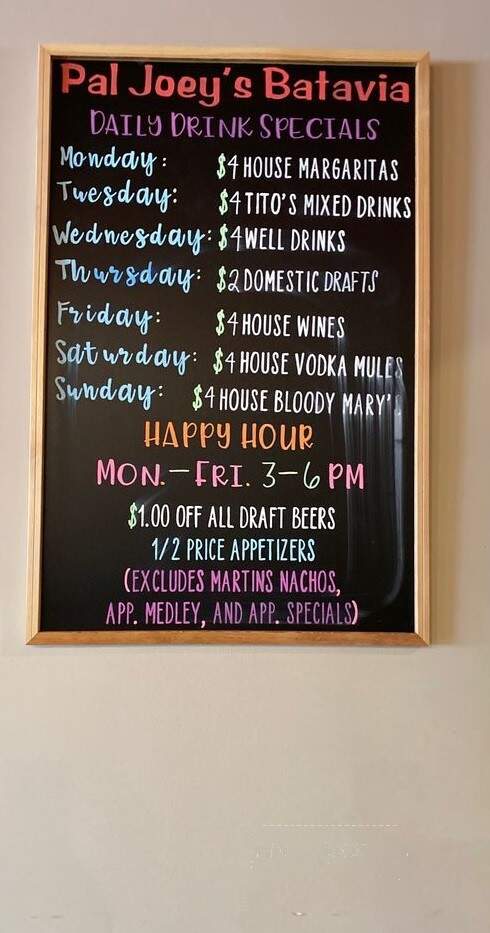 Pal Joey's Batavia
DAILY DRINK SPECIALS
Monday: $4 HOUSE MARGARITAS
Tuesday: $4 TITO'S MIXED DRINKS
Wednesday: $4 WELL DRINKS
Thursday: $2 DOMESTIC DRAFTS
Friday: $4 HOUSE WINES
Saturday: $4 HOUSE VODKA MULES
Sunday: $4 HOUSE BLOODY MARY'S
HAPPY HOUR
MON.-FRI. 3-6 PM
$1.00 OFF ALL DRAFT BEERS
1/2 PRICE APPETIZERS
(EXCLUDES MARTINS NACHOS,
APP. MEDLEY, AND APP. SPECIALS)